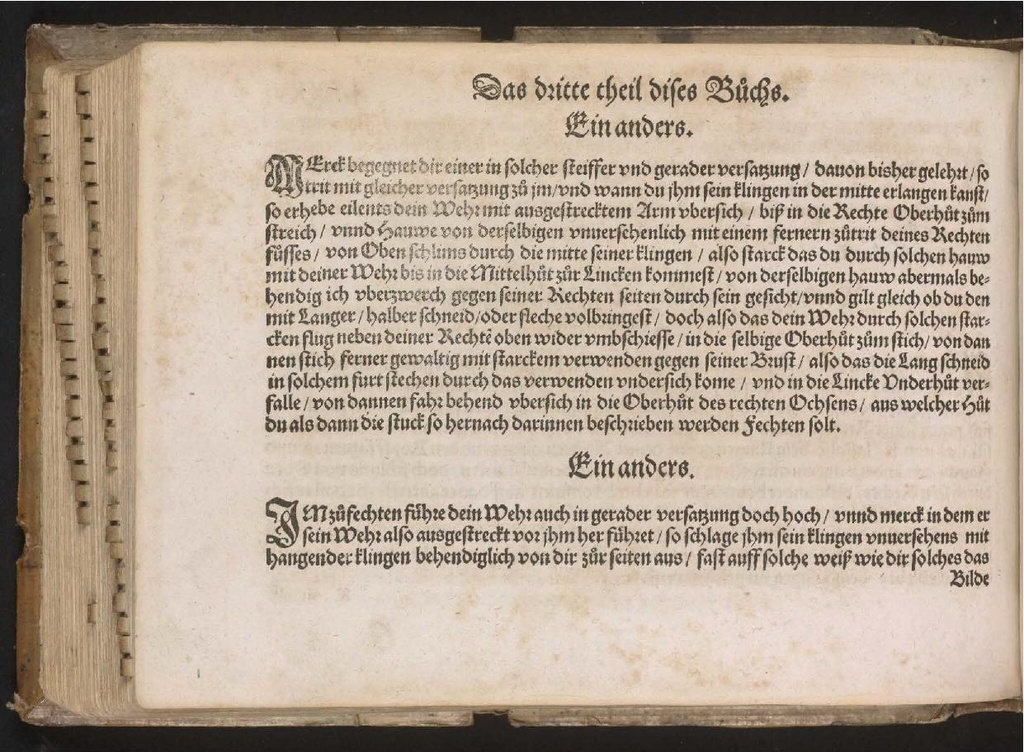 Das dritte theil dises Bůchs.
Ein anders.
MErck begegnet dir einer in solcher steiffer vnd gerader versatzung / dauon bisher gelehrt / so
trit mit gleicher versatzung zů jm / vnd wann du jhm sein klingen in der mitte erlangen kanst /
so erhebe eilents dein Wehr mit ausgestrecktem Arm vbersich / biß in die Rechte Oberhůt zům
streich / vnnd Hauwe von derselbigen vnuersehenlich mit einem fernern zůtrit deines Rechten
fůsses / von Oben schlims durch die mitte seiner klingen / also starck das du durch solchen hauw
mit deiner Wehr bis in die Mittelhůt zůr Lincken kommest / von derselbigen hauw abermals be-
hendig ich vberzwerch gegen seiner Rechten seiten durch sein gesicht / vnnd gilt gleich ob du den
mit Langer / halber schneid / oder fleche volbringest / doch also das dein Wehr durch solchen star-
cken flug neben deiner Rechtē oben wider vmbschiesse / in die selbige Oberhůt zům stich / von dan
nen stich ferner gewaltig mit starckem verwenden gegen seiner Brust / also das die Lang schneid
in solchem furt stechen durch das verwenden vndersich kome / vnd in die Lincke Vnderhůt ver-
falle / von dannen fahr behend vbersich in die Oberhůt des rechten Ochsens / aus welcher Hůt
du als dann die stuck so hernach darinnen beschrieben werden Fechten solt.
Ein anders.
IM zůfechten fůhre dein Wehr auch in gerader versatzung doch hoch / vnnd merck in dem er
sein Wehr also ausgestreckt vor jhm her fůhret / so schlage jhm sein klingen vnuersehens mit
hangender klingen behendiglich von dir zůr seiten aus / fast auff solche weiß wie dir solches das
Bilde